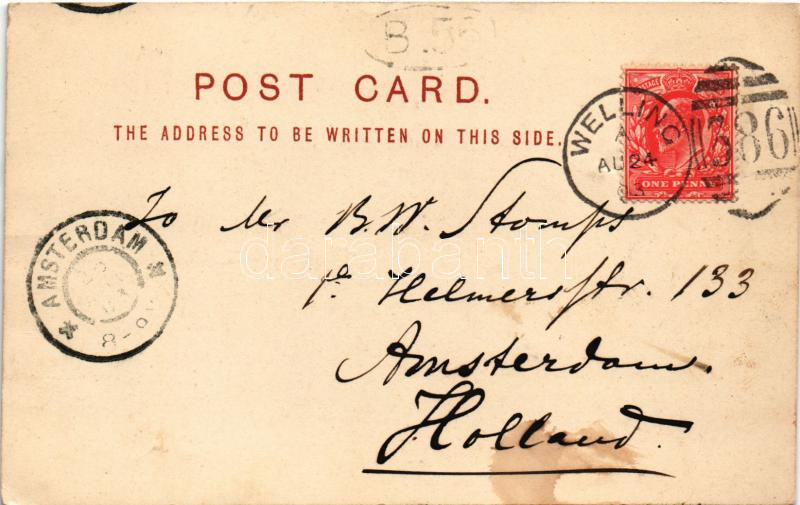 B.56
POST CARD.
THE ADDRESS TO BE WRITTEN ON THIS SIDE.
POSTAGE
ONE PENNY
WELLING
A
AU 24
386
To Mr B.W. Stomps
1e Helmersstr. 133
Amsterdam.
Holland.
* AMSTERDAM *
8-9V
darabanth